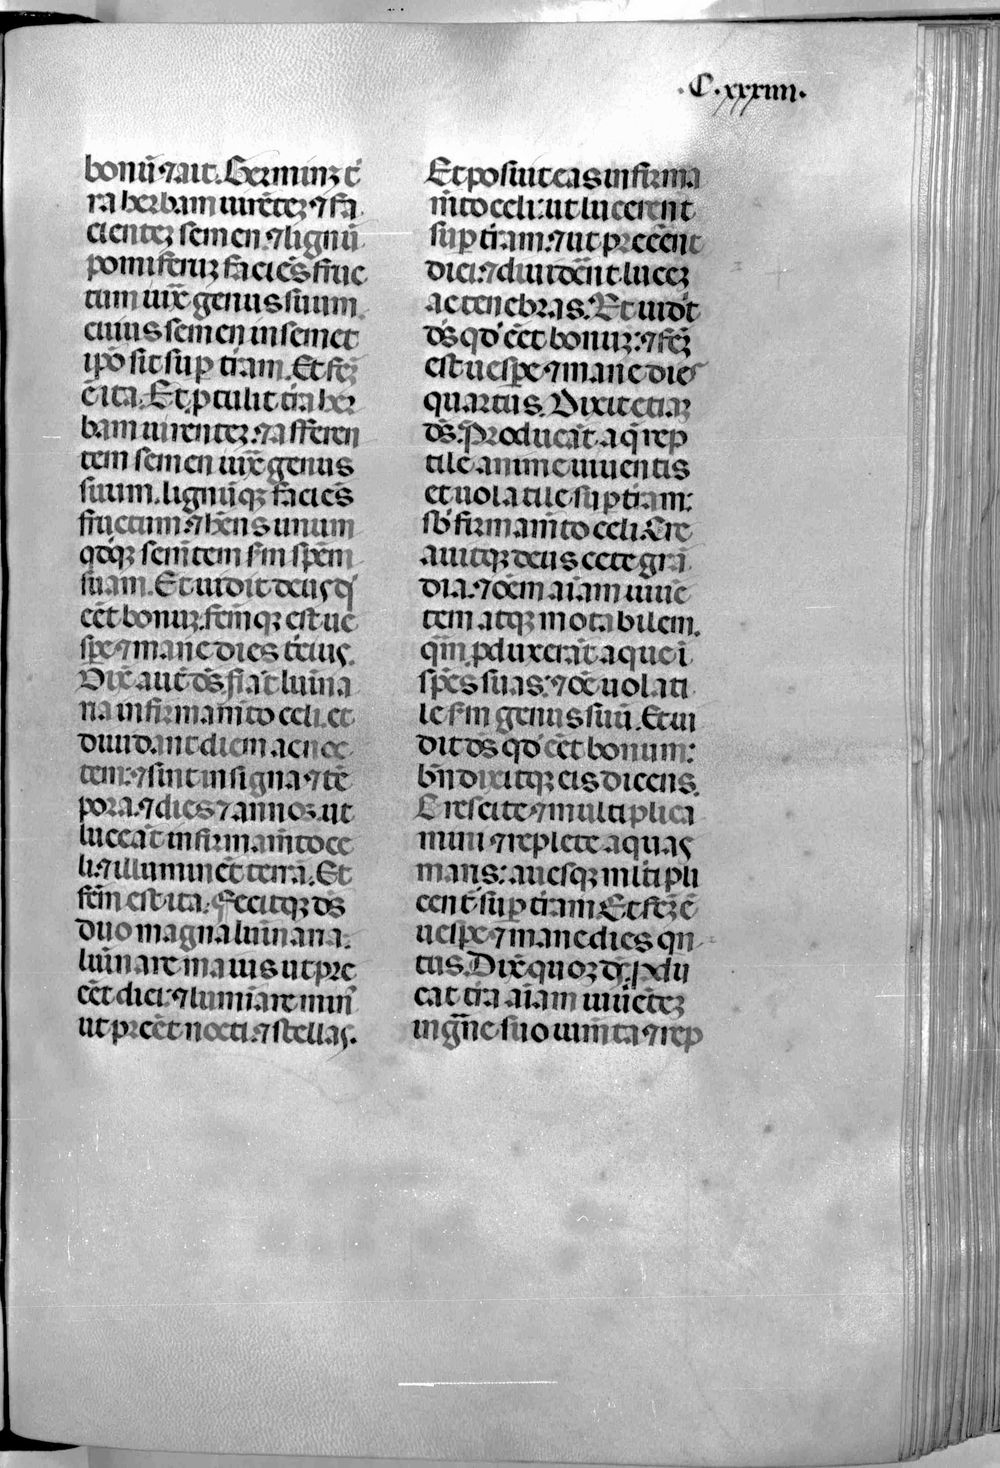 .C.xxxiiii.
bonū ⁊ ait. Germinꝫ t̄
ra herbam uirētеꝫ ⁊ fa
cienteꝫ semen ⁊ lignū
pomiferuꝫ faciēs fruc
tum iux̄ genus suum
cuius semen in semet
ip̄o sit suꝑ t̄ram. Et fc̄ꝫ
ē ita. Et ꝓtulit t̄ra her
bam uirenteꝫ: ⁊ afferen
tem semen iux̄ genus
suum. lignūqꝫ faciēs
fructum: ⁊ hēns unum
qdqꝫ sem̄tem s̄m sp̄em
suam. Et uidit deus qd̄
eēt bonuꝫ: fc̄mqꝫ est ue
sꝑe ⁊ mane dies t̄cius.
Dix̄ aut̄ ds̄. fiāt lūina
ria in firmam̄to celi. et
diuidant diem ac noc
tem: ⁊ sint in signa ⁊ tē
pora. ⁊ dies ⁊ annos. ut
luceāt in firmam̄to ce
li. ⁊ illuminēt terrā. Et
fc̄m est ita. Fecitqꝫ ds̄
duo magna lūinaria.
lūinare maius ut pre
eēt diei: ⁊ lumīare min̄
ut preēt nocti: ⁊ stellas.
Et posuit eas in firma
m̄to celi: ut lucerent
suꝑ t̄ram: ⁊ ut preeēnt
diei: ⁊ diuidēnt luceꝫ
ac tenebras. Et uidit
ds̄ qd̄ eēt bonuꝫ: ⁊ fc̄ꝫ
est uesꝑe ⁊ mane dies
quartus. Dixit etiaꝫ
ds̄. Producāt aq̄ rep
tile anime uiuentis
et uolatile suꝑ t̄ram:
sb̄ firmam̄to celi. Cre
auitqꝫ deus cete grā
dia. ⁊ oēm aīam uiuē
tem atqꝫ motabilem.
qm̄ ꝓduxerāt aque ī
sp̄es suas: ⁊ oē uolati
le s̄m genus suū. Et ui
dit ds̄ qd̄ eēt bonum:
bn̄dixitqꝫ eis dicens.
Crescite ⁊ multiplica
mini ⁊ replete aquas
maris: auesqꝫ ml̄tipli
cent̄ suꝑ t̄ram Et fc̄ꝫ ē
uesꝑe ⁊ mane dies qn̄
tus. Dix̄ quoꝫ ds̄. ꝓdu
cat t̄ra aīam uiuēteꝫ
in gn̄e suo iumta ⁊ rep